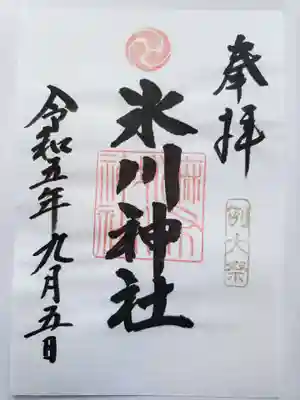 奉拝
例大祭
氷川神社
令和五年九月五日